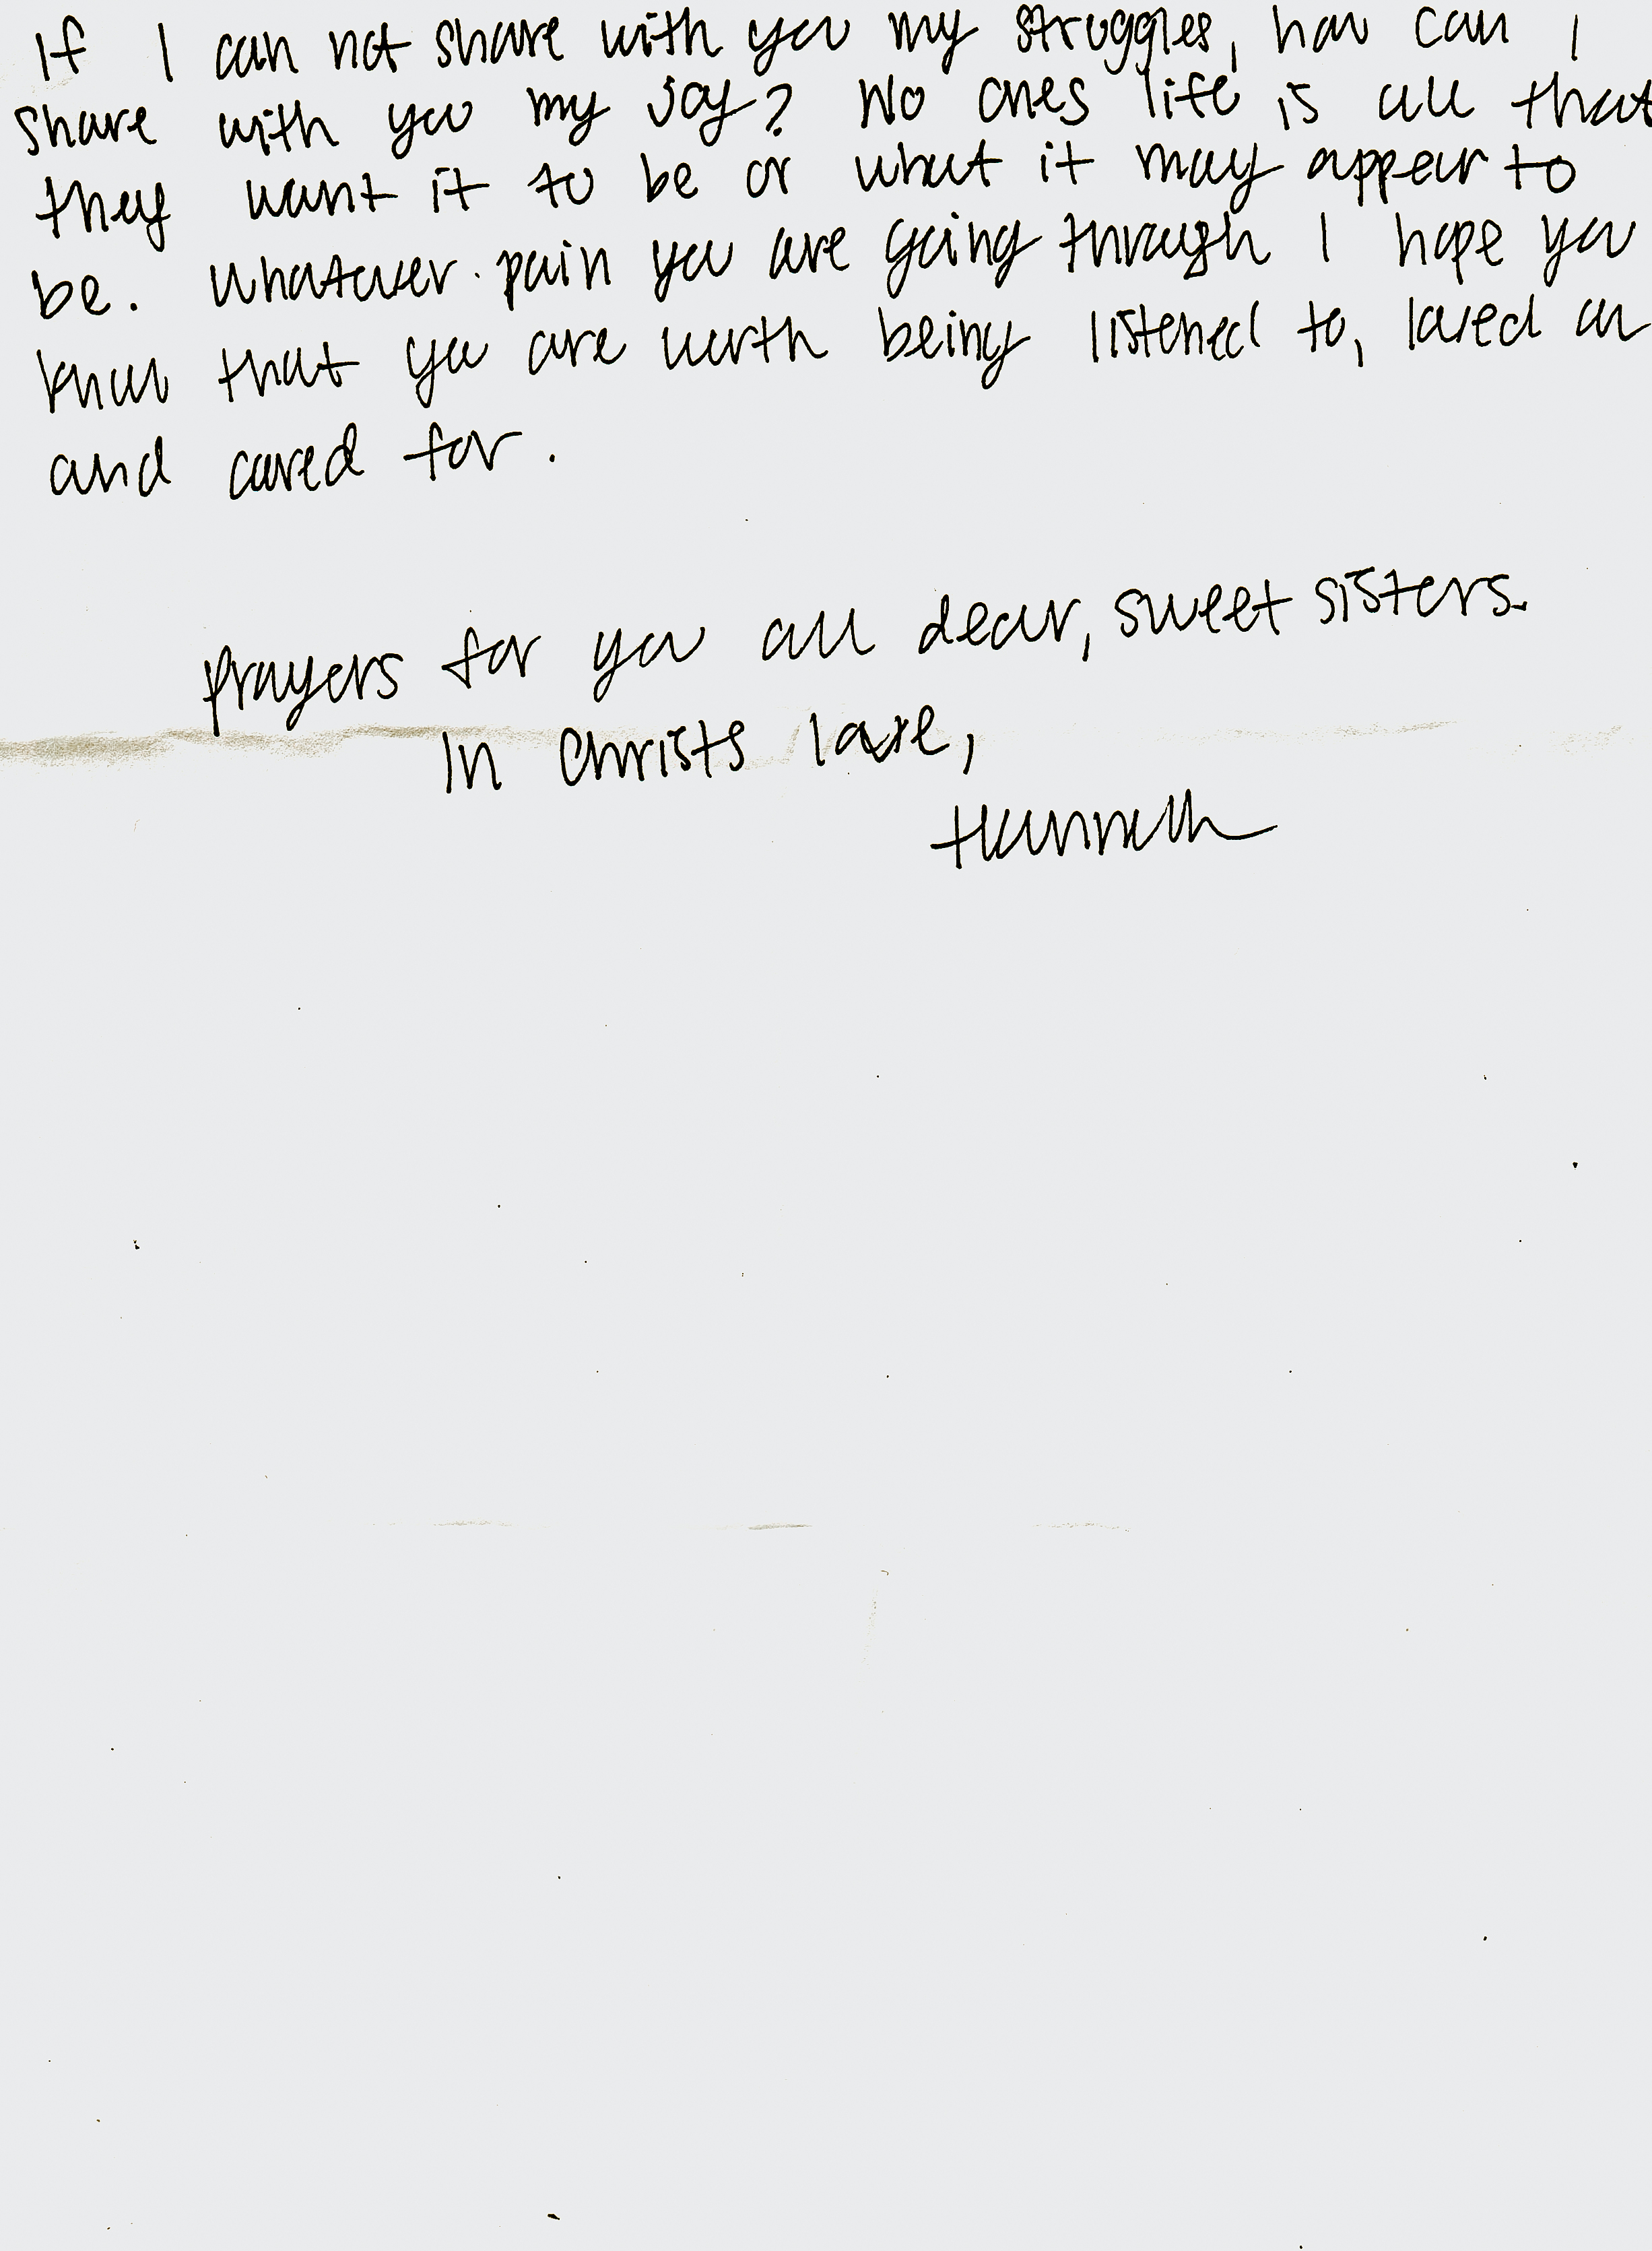 If I can not share with you my struggles, how can I
share with you my joy? No ones life is all that
they want it to be or what it may appear to
be. Whatever pain you are going through I hope you
know that you are worth being listened to, loved on
and cared for.
Prayers for you all dear, sweet sisters.
In Christs love,
Hannah